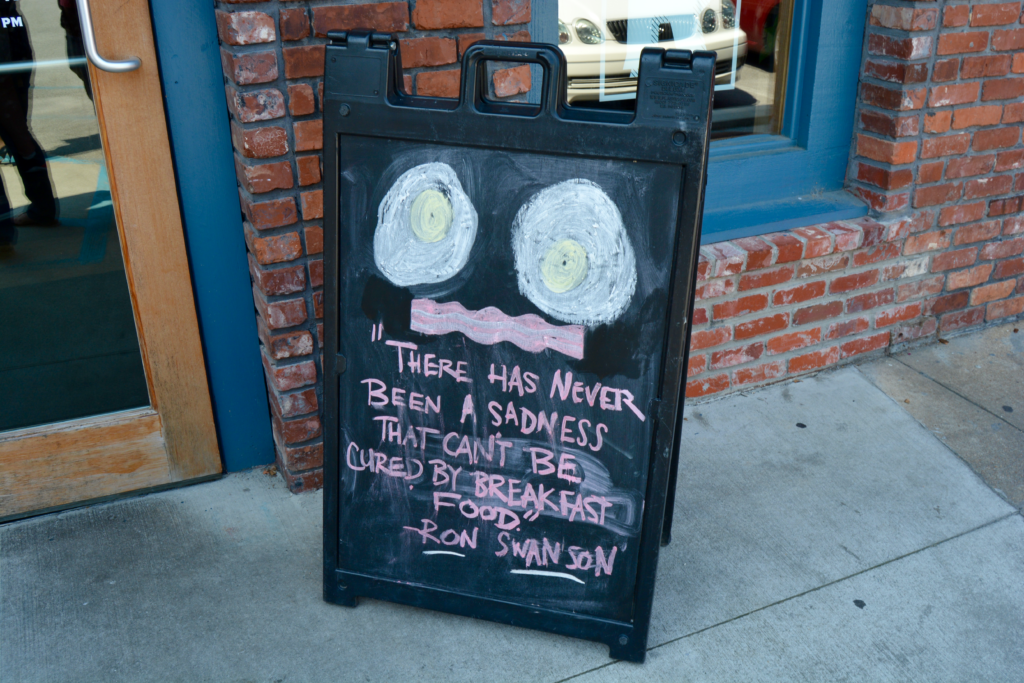 PM
"THERE HAS NEVER
BEEN A SADNESS
THAT CAN'T BE
CURED BY BREAKFAST
FOOD."
-RON SWANSON